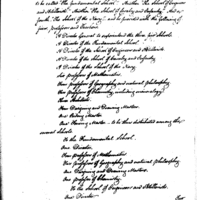 to be called "The fundamental School." Another "The School of Engineers
and Artillerists." Another "The School of Cavalry and Infantry," And a
fourth "The School of the Navy;" and be provided with the following
A Director General to superintend the three first Schools
A Director of the Fundamental School
A Director of the School of Engineers and Artillerists
A Director of the School of Cavalry and Infantry
A Director of the School of the Navy
Professors of Mathematics
Professors of Geography and natural philosophy
Professors of Chemistry, including mineralogy
Three Architects
Designing and Drawing Masters
One Riding Master
One Fencing Master. To be thus distributed among the
several Schools
To the Fundamental School.
One Director
Professors of Mathematics
Professor of Geography and natural philosophy
One Professor of Chemistry
Designing and Drawing Masters.
To the School of Engineers and Artillerists.
One Director